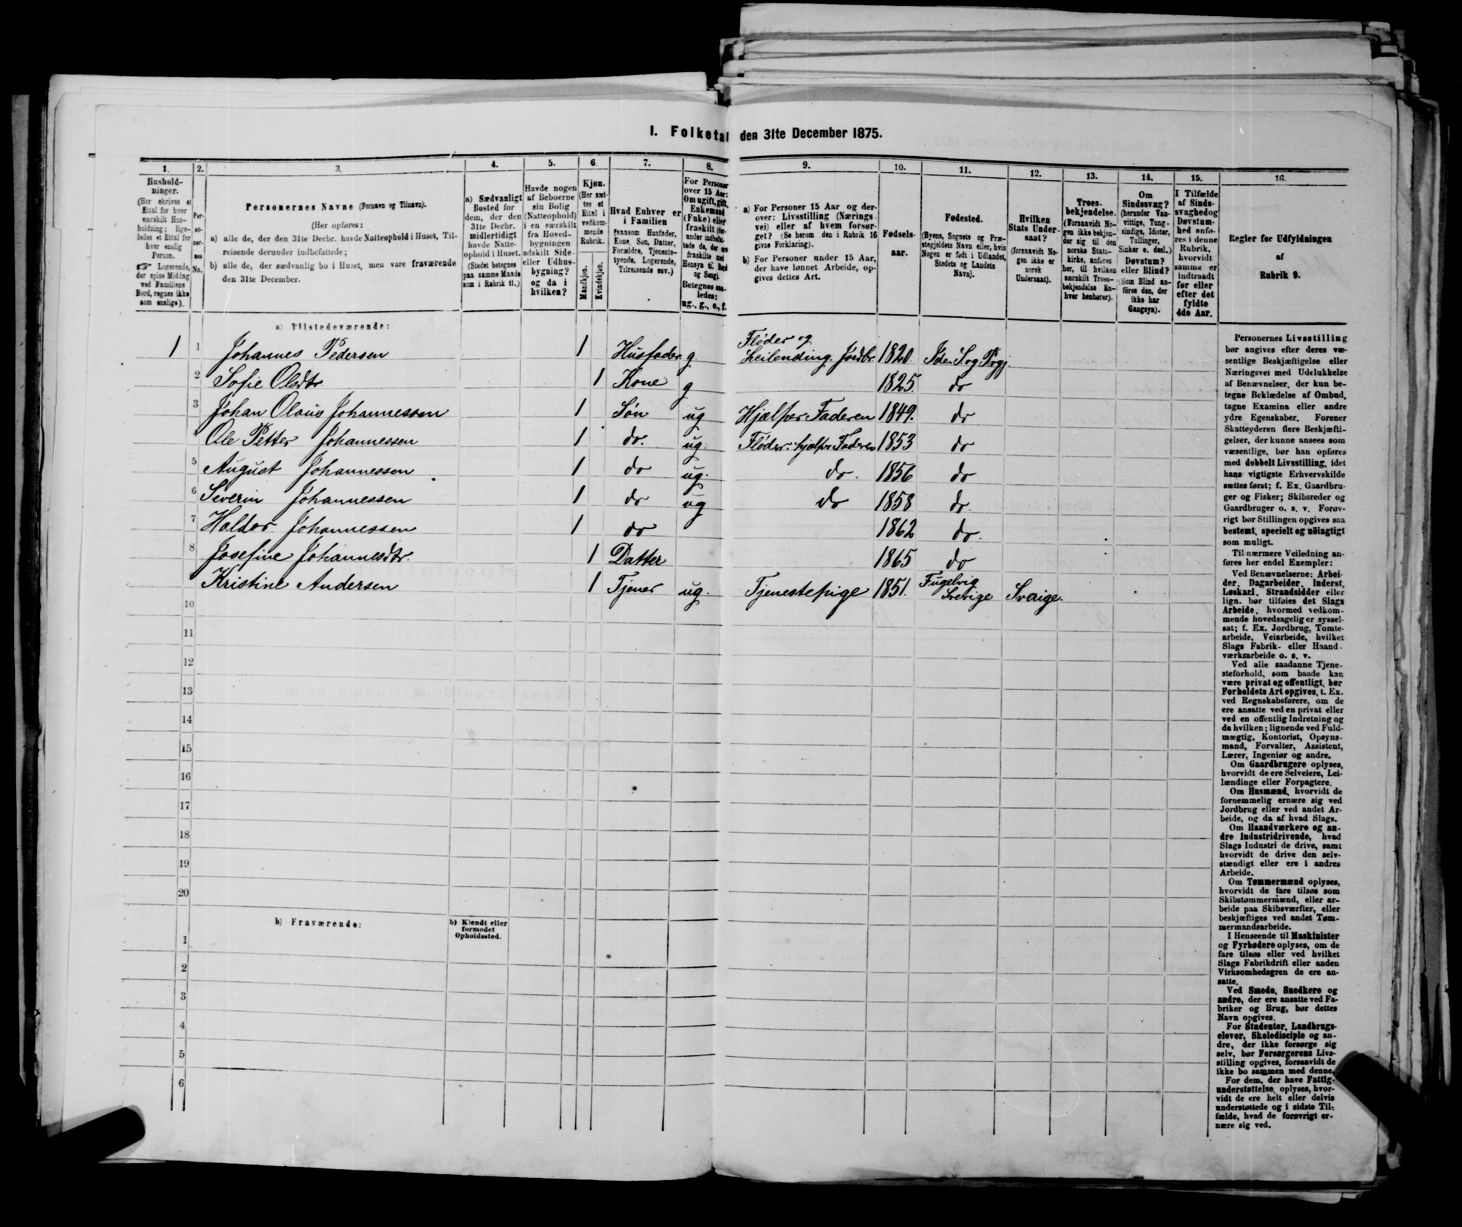 I. Folketal den 31te December 1875.
1. 2. 3. 4. 5. 6. 7. 8. 9. 10. 11. 12. 13. 14. 15. 16.
Personernes Navne (Fornavn og Tilnavn).
(Her opføres:
a) alle de, der den 31te Decbr. havde Natteophold i Huset, Til-
reisende derunder indbefattede;
b) alle de, der sædvanlig bo i Huset, men vare fraværende
den 31te December.
a) Sædvanligt
Bosted for
dem, der den
31te Decbr.
midlertidigt
havde Natte-
ophold i Huset.
(Stedet betegnes
paa samme Maade
som i Rubrik 11.)
Havde nogen
af Beboerne
sin Bolig
(Natteophold)
i en særskilt
fra Hoved-
bygningen
adskilt Side-
eller Udhus-
bygning?
og da i
hvilken?
Kjøn.
(Her sæt-
tes et
Ettal i
vedkom-
mende
Rubrik.
Mandkjøn.
Kvindekjøn.
Hvad Enhver er
i Familien
(saasom Husfader,
Kone, Søn, Datter,
Forældre, Tjeneste-
tyende, Logerende,
Tilreisende osv.)
a) For Personer 15 Aar og der-
over: Livsstilling (Nærings-
vei) eller af hvem forsør-
get? (Se herom den i Rubrik 16
givne Forklaring).
b) For Personer under 15 Aar,
der have lønnet Arbeide, op-
gives dettes Art.
Fødsels-
aar.
Fødested.
(Byens, Sognets og Præ-
stegjeldets Navn eller, hvis
Nogen er født i Udlandet,
Stedets og Landets
Navn).
Hvilken
Stats Under-
saat?
(forsaavidt No-
gen ikke er
norsk
Undersaat).
Troes-
bekjendelse.
(Forsaavidt No-
gen ikke bekjen-
der sig til den
norske Stats-
kirke, anføres
her, til hvilken
særskilt Troes-
bekjendelse En-
hver henhører).
Om
Sindssvag?
(herunder Van-
vittige, Tung-
sindige, Idioter,
Tullinger,
Sinker o. desl.)
Døvstum?
eller Blind?
(Som Blind an-
føres den, der
ikke har
Gangsyn).
I Tilfælde
af Sinds-
svaghed og
Døvstum-
hed anfø-
res i denne
Rubrik,
hvorvidt
samme er
indtraadt
før eller
efter det
fyldte
4de Aar.
Regler for Udfyldningen
af
Rubrik 9.
a) Tilstedeværende:
1 1 Johannes Pedersen 1 Husfader g Fløder og Leilending Jordbr 1820 Ide Sog Prgj.
2 Sofie Olsdtr 1 Kone g 1825 do
3 Johan Olaus Johannessen 1 Søn ug Hjælper Faderen 1849. do
4 Ole Petter Johannessen 1 do. ug. Fløder. hjælper Faderen 1853 do
5 August Johannessen 1 do ug. do. 1856 do
6 Severin Johannessen 1 do ug do 1858 do
7 Haldor Johannessen 1 do 1862 do.
8 Josefine Johannesdtr. 1 Datter 1865 do
Kristine Andersen 1 Tjener ug. Tjenestepige 1851. Fugelvig Sverige Sverige.
10
11
12
13
14
15
16
17
18
19
20
b) Fraværende:
b) Kjendt eller
formodet
Opholdssted.
1
2
3
4
5
6
Personernes Livsstilling
bør angives efter deres væ-
sentlige Beskjæftigelse eller
Næringsvei med Udelukkelse
af Benævnelser, der kun be-
tegne Beklædelse af Ombud,
tagne Examina eller andre
ydre Egenskaber. Forener
Skatteyderen flere Beskjæfti-
gelser, der kunne ansees som
væsentlige, bør han opføres
med dobbelt Livsstilling, idet
hans vigtigste Erhvervskilde
sættes først; f. Ex. Gaardbru-
ger og Fisker; Skibsreder og
Gaardbruger o. s. v. Forøv-
rigt bør Stillingen opgives saa
bestemt, specielt og nøiagtigt
som muligt.
Til nærmere Veiledning an-
føres her endel Exempler:
Ved Benævnelserne: Arbei-
der, Dagarbeider, Inderst,
Løskarl, Strandsidder eller
lign. bør tilføies det Slags
Arbeide, hvormed vedkom-
mende hovedsagelig er syssel-
sat; f. Ex. Jordbrug, Tomte-
arbeide, Veiarbeide, hvilket
Slags Fabrik- eller Haand-
værksarbeide o. s. v.
Ved alle saadanne Tjene-
steforhold, som baade kan
være privat og offentligt, bør
Forholdets Art opgives, t. Ex.
ved Regnskabsførere, om de
ere ansatte ved en privat eller
ved en offentlig Indretning og
da hvilken; lignende ved Fuld-
mægtig, Kontorist, Opsyns-
mand, Forvalter, Assistent,
Lærer, Ingeniør og andre.
Om Gaardbrugere oplyses,
hvorvidt de ere Selveiere, Lei-
lændinge eller Forpagtere.
Om Husmænd, hvorvidt de
fornemmelig ernære sig ved
Jordbrug eller ved andet Ar-
beide, og da af hvad Slags.
Om Haandværkere og an-
dre Industridrivende, hvad
Slags Industri de drive, samt
hvorvidt de drive den selv-
stændigt eller ere i andres
Arbeide.
Om Tømmermænd oplyses,
hvorvidt de fare tilsøs som
Skibstømmermænd, eller ar-
beide paa Skibsværfter, eller
beskjæftiges ved andet Tøm-
mermandsarbeide.
I Henseende til Maskinister
og Fyrbødere oplyses, om de
fare tilsøs eller ved hvilket
Slags Fabrikdrift eller anden
Virksomhedsgren de ere an-
satte.
Ved Smede, Snedkere og
andre, der ere ansatte ved Fa-
briker og Brug, bør dettes
Navn opgives.
For Studenter, Landbrugs-
elever, Skoledisciple og an-
dre, der ikke forsørge sig
selv, bør Forsørgerens Livs-
stilling opgives, forsaavidt de
ikke bo sammen med denne.
For dem, der have Fattig-
understøttelse, oplyses, hvor-
vidt de ere helt eller delvis
understøttede og i sidste Til-
fælde, hvad de forøvrigt er-
nære sig ved.